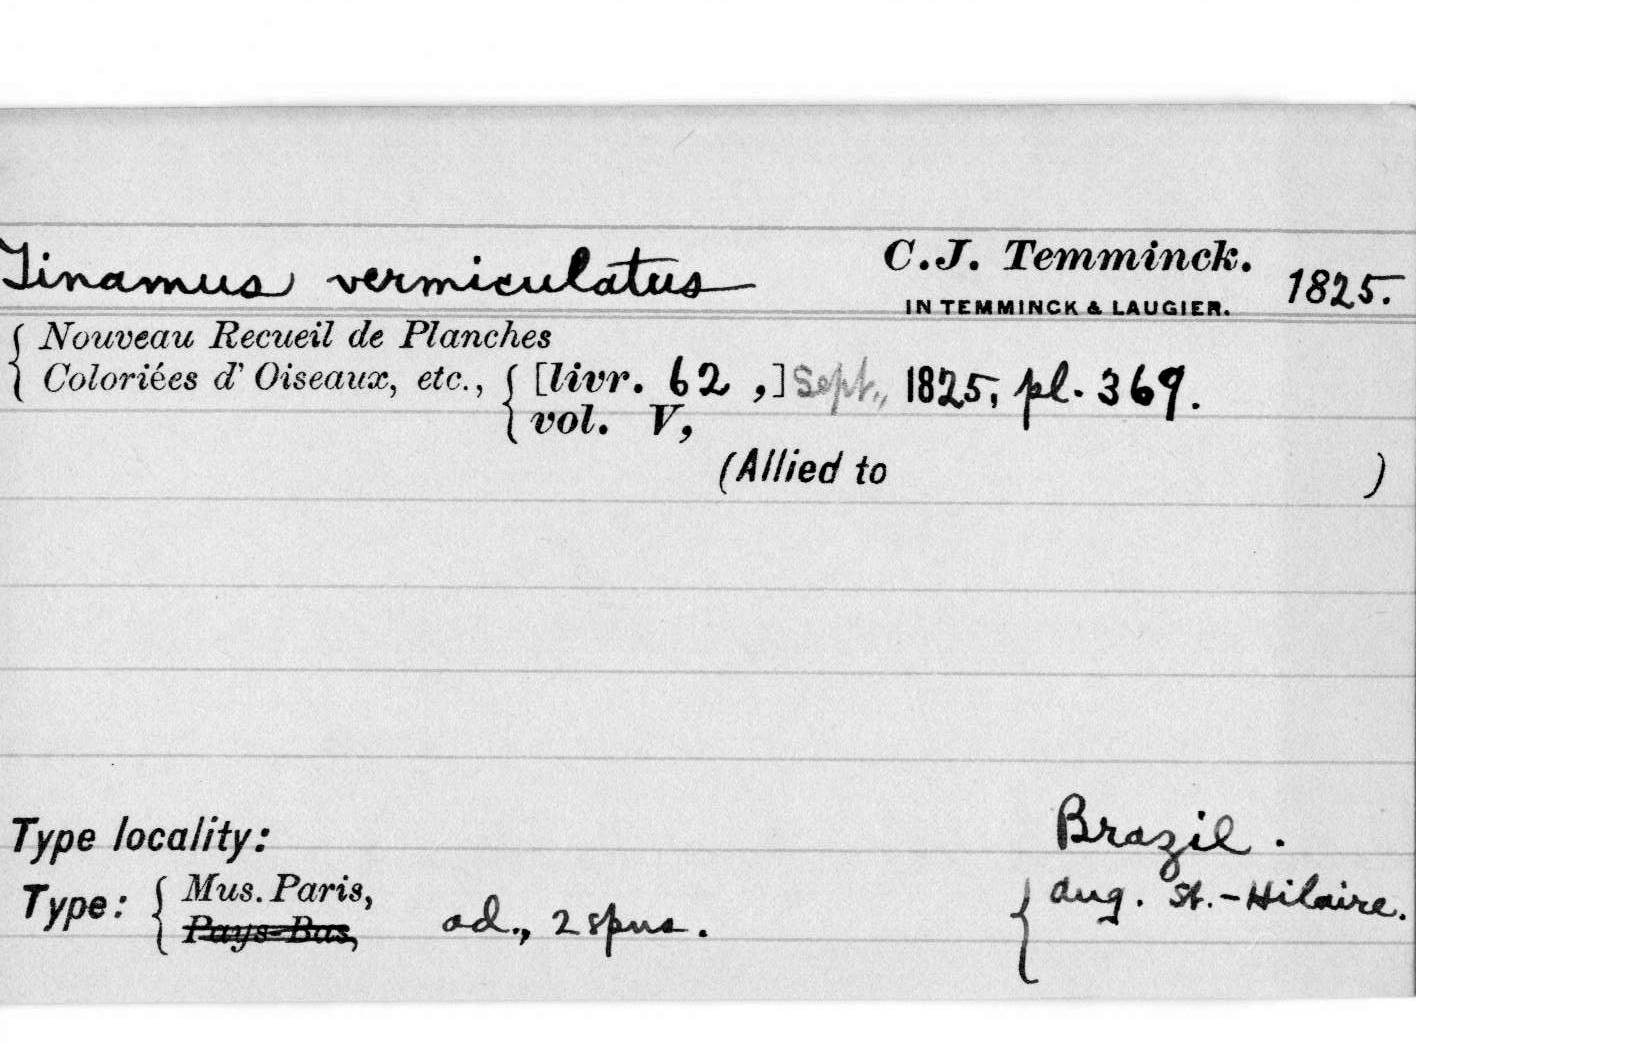 Tinamus vermiculatus C.J. Temminck. 1825.
IN TEMMINCK & LAUGIER.
{ Nouveau Recueil de Planches
{ Coloriées d' Oiseaux, etc., { [livr. 62 ,] Sept., 1825, pl. 369.
{ vol. V,
(Allied to )
Type locality: Brazil.
Type: { Mus. Paris, { Aug. St.-Hilaire.
Pays-Bas, ad., 2 spns.